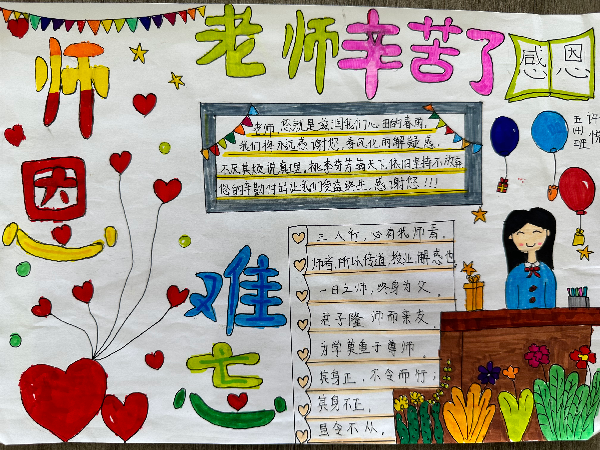 老师辛苦了
感恩
师恩难忘
五田班
许悦
老师,您就是滋润我们心田的春雨,
我们将永远感谢您,春风化雨解疑惑,
不厌其烦说真理,桃李芬芳满天下,依旧坚持不放弃
您的辛勤付出让我们受益终生,感谢您!!!
三人行,必有我师焉。
师者,所以传道,授业,解惑也。
一日之师,终身为父,
君子隆师而亲友,
为学莫重于尊师。
其身正,不令而行;
其身不正,
虽令不从。